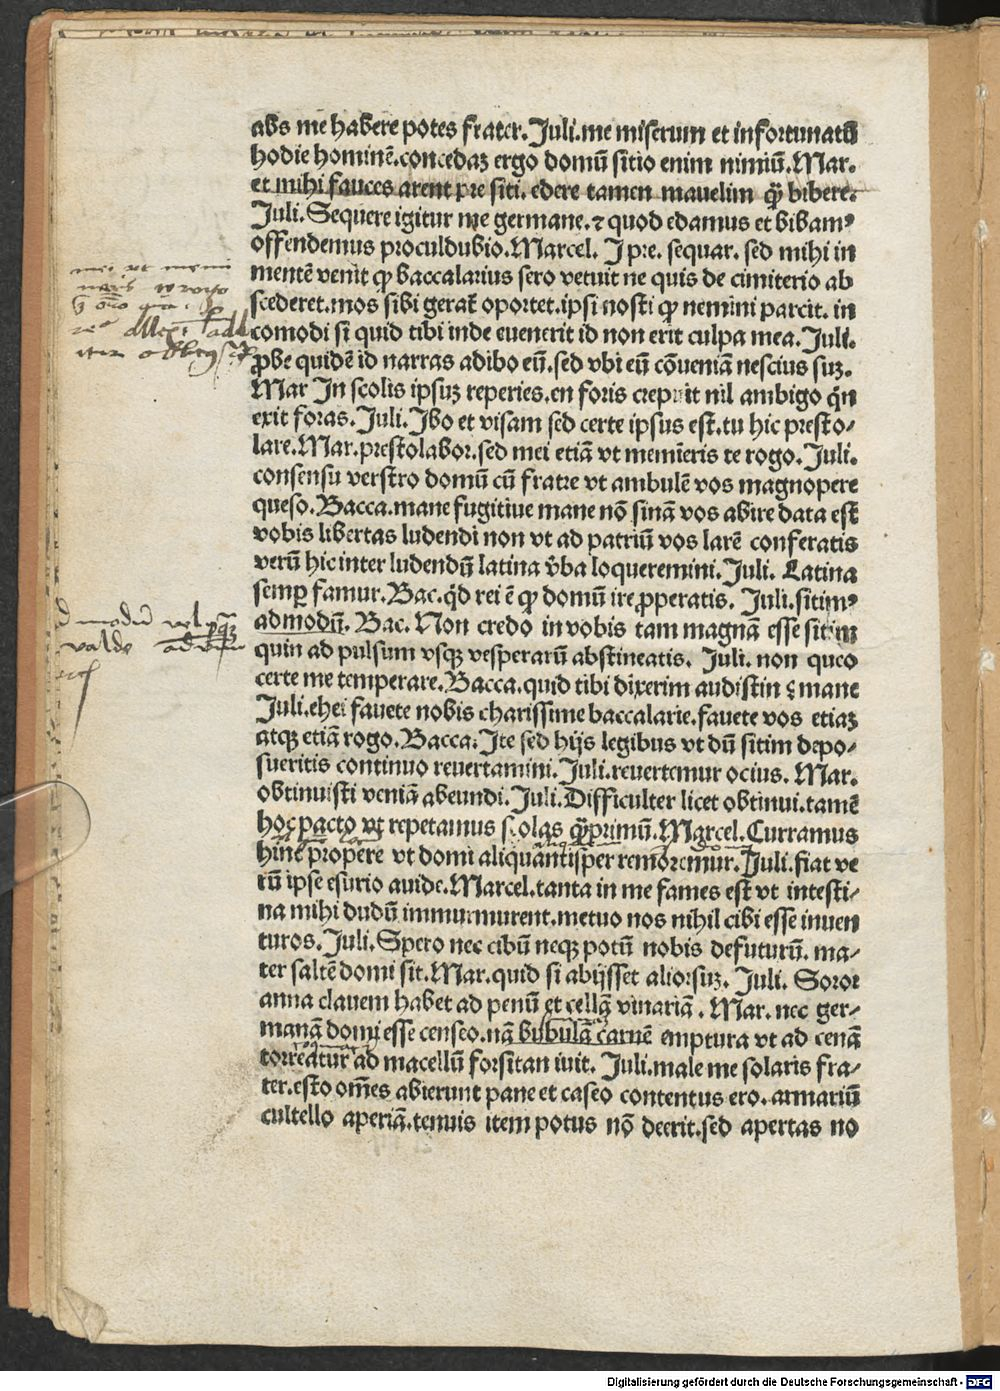 abs me habere potes frater. Juli. me miserum et infortunatū
hodie hominē. concedaꝫ ergo domū sitio enim nimiū. Mar.
et mihi fauces arent pre siti. edere tamen mauelim q̄ꝫ bibere.
Juli. Sequere igitur me germane. ⁊ quod edamus et bibamꝰ
offendemus proculdubio. Marcel. J pre. sequar. sed mihi in
mentē venit qꝙ baccalarius sero vetuit ne quis de cimiterio ab
scederet. mos sibi gerat̄ oportet. ipsi nosti ꝙ nemini parcit. in
comodi si quid tibi inde euenerit id non erit culpa mea. Juli.
ꝓbe quidē id narras adibo eū. sed vbi eū cōueniā nescius suꝫ.
Mar Jn scolis ipsuꝫ reperies. en foris crepuit nil ambigo q̄n
exit foras. Juli. Jbo et visam sed certe ipsus est. tu hic presto-
lare. Mar. prestolabor. sed mei etiā vt memīeris te rogo. Juli.
consensu verstro domū cū fratre vt ambulē vos magnopere
queso. Bacca. mane fugitiue mane nō sinā vos abire data est
vobis libertas ludendi non vt ad patriū vos larē conferatis
verū hic inter ludendū latina v̄ba loqueremini. Juli. Latina
semꝑ famur. Bac. q̄d rei ē ꝙ domū ire ꝓperatis. Juli. sitimꝰ
admodū. Bac. Non credo in vobis tam magnā esse sitim
quin ad pulsum vsqꝫ vesperarū abstineatis. Juli. non queo
certe me temperare. Bacca. quid tibi dixerim audistin ꝫ mane
Juli. ehei fauete nobis charissime baccalarie. fauete vos etiaꝫ
atqꝫ etiā rogo. Bacca. Jte sed hijs legibus vt dū sitim depo-
sueritis continuo reuertamini. Juli. reuertemur ocius. Mar.
obtinuisti veniā abeundi. Juli. Difficulter licet obtinui. tamē
hoc pacto vt repetamus scolas q̄ꝫprimū. Marcel. Curramus
hinc propere vt domi aliquantisper remoremur. Juli. fiat ve
rū ipse esurio auide. Marcel. tanta in me fames est vt intesti-
na mihi dudū immurmurent. metuo nos nihil cibi esse inuen
turos. Juli. Spero nec cibū neqꝫ potū nobis defuturū. ma-
ter saltē domi sit. Mar. quid si abijsset aliorsuꝫ. Juli. Soror
anna clauem habet ad penū et cellā vinariā. Mar. nec ger-
manā domi esse censeo. nā bubulā carnē emptura vt ad cenā
torreatur ad macellū forsitan iuit. Juli. male me solaris fra-
ter. esto om̄es abierunt pane et caseo contentus ero. armariū
cultello aperiā. tenuis item potus nō deerit. sed apertas no
valde
Digitalisierung gefördert durch die Deutsche Forschungsgemeinschaft - DFG